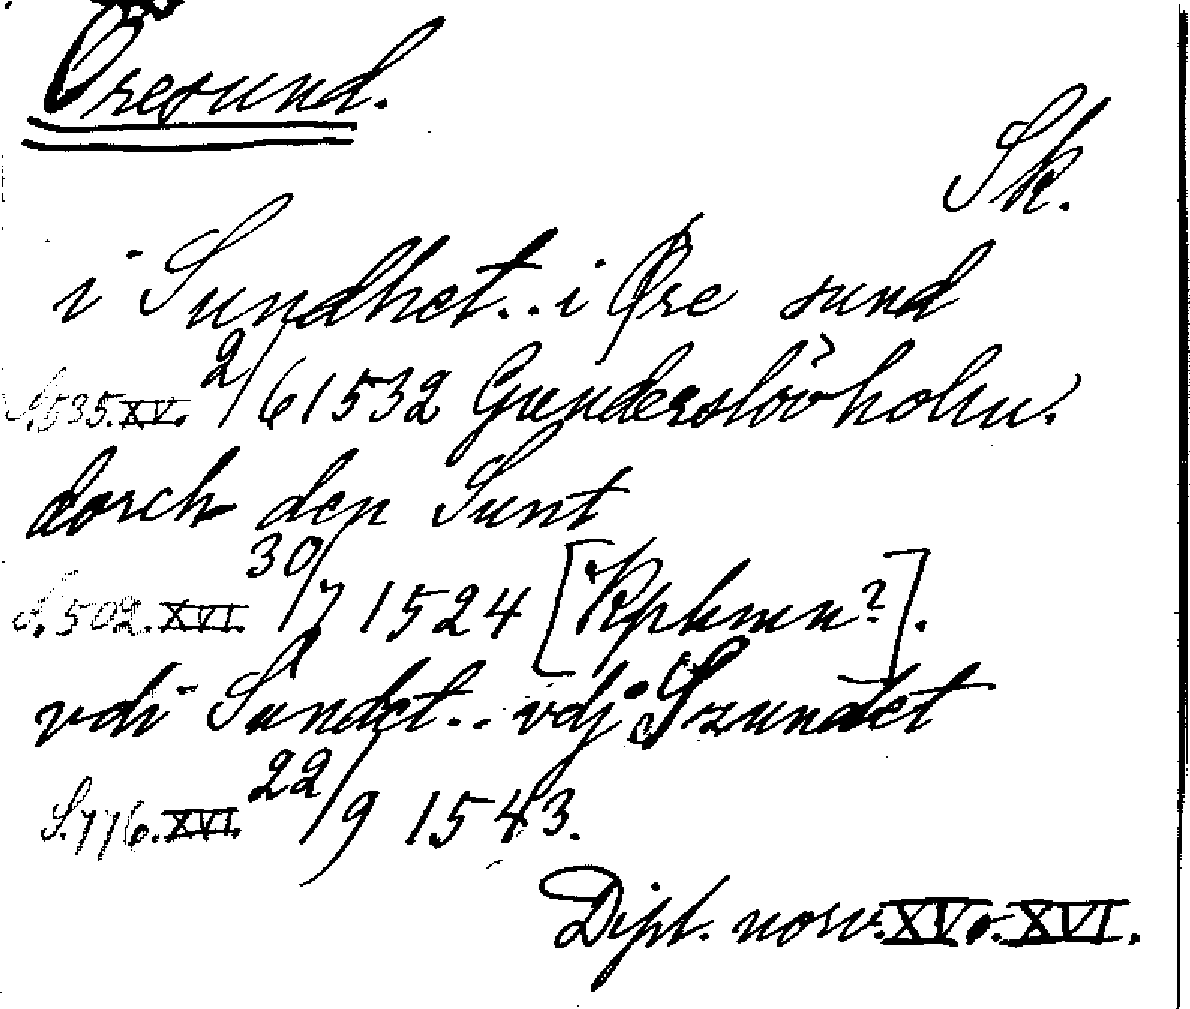 Öresund.
Sk.
i Sundhet.. i Øre sund
S.535.XV. 2/6 1532 Gunderslövholm.
dorch den Sunt
S.502.XVI. 30/7 1524 [Kphmn?].
vdi Sundet.. vdj Szundet
S.776.XVI. 22/9 1543.
Dipl. norv. XV o. XVI.